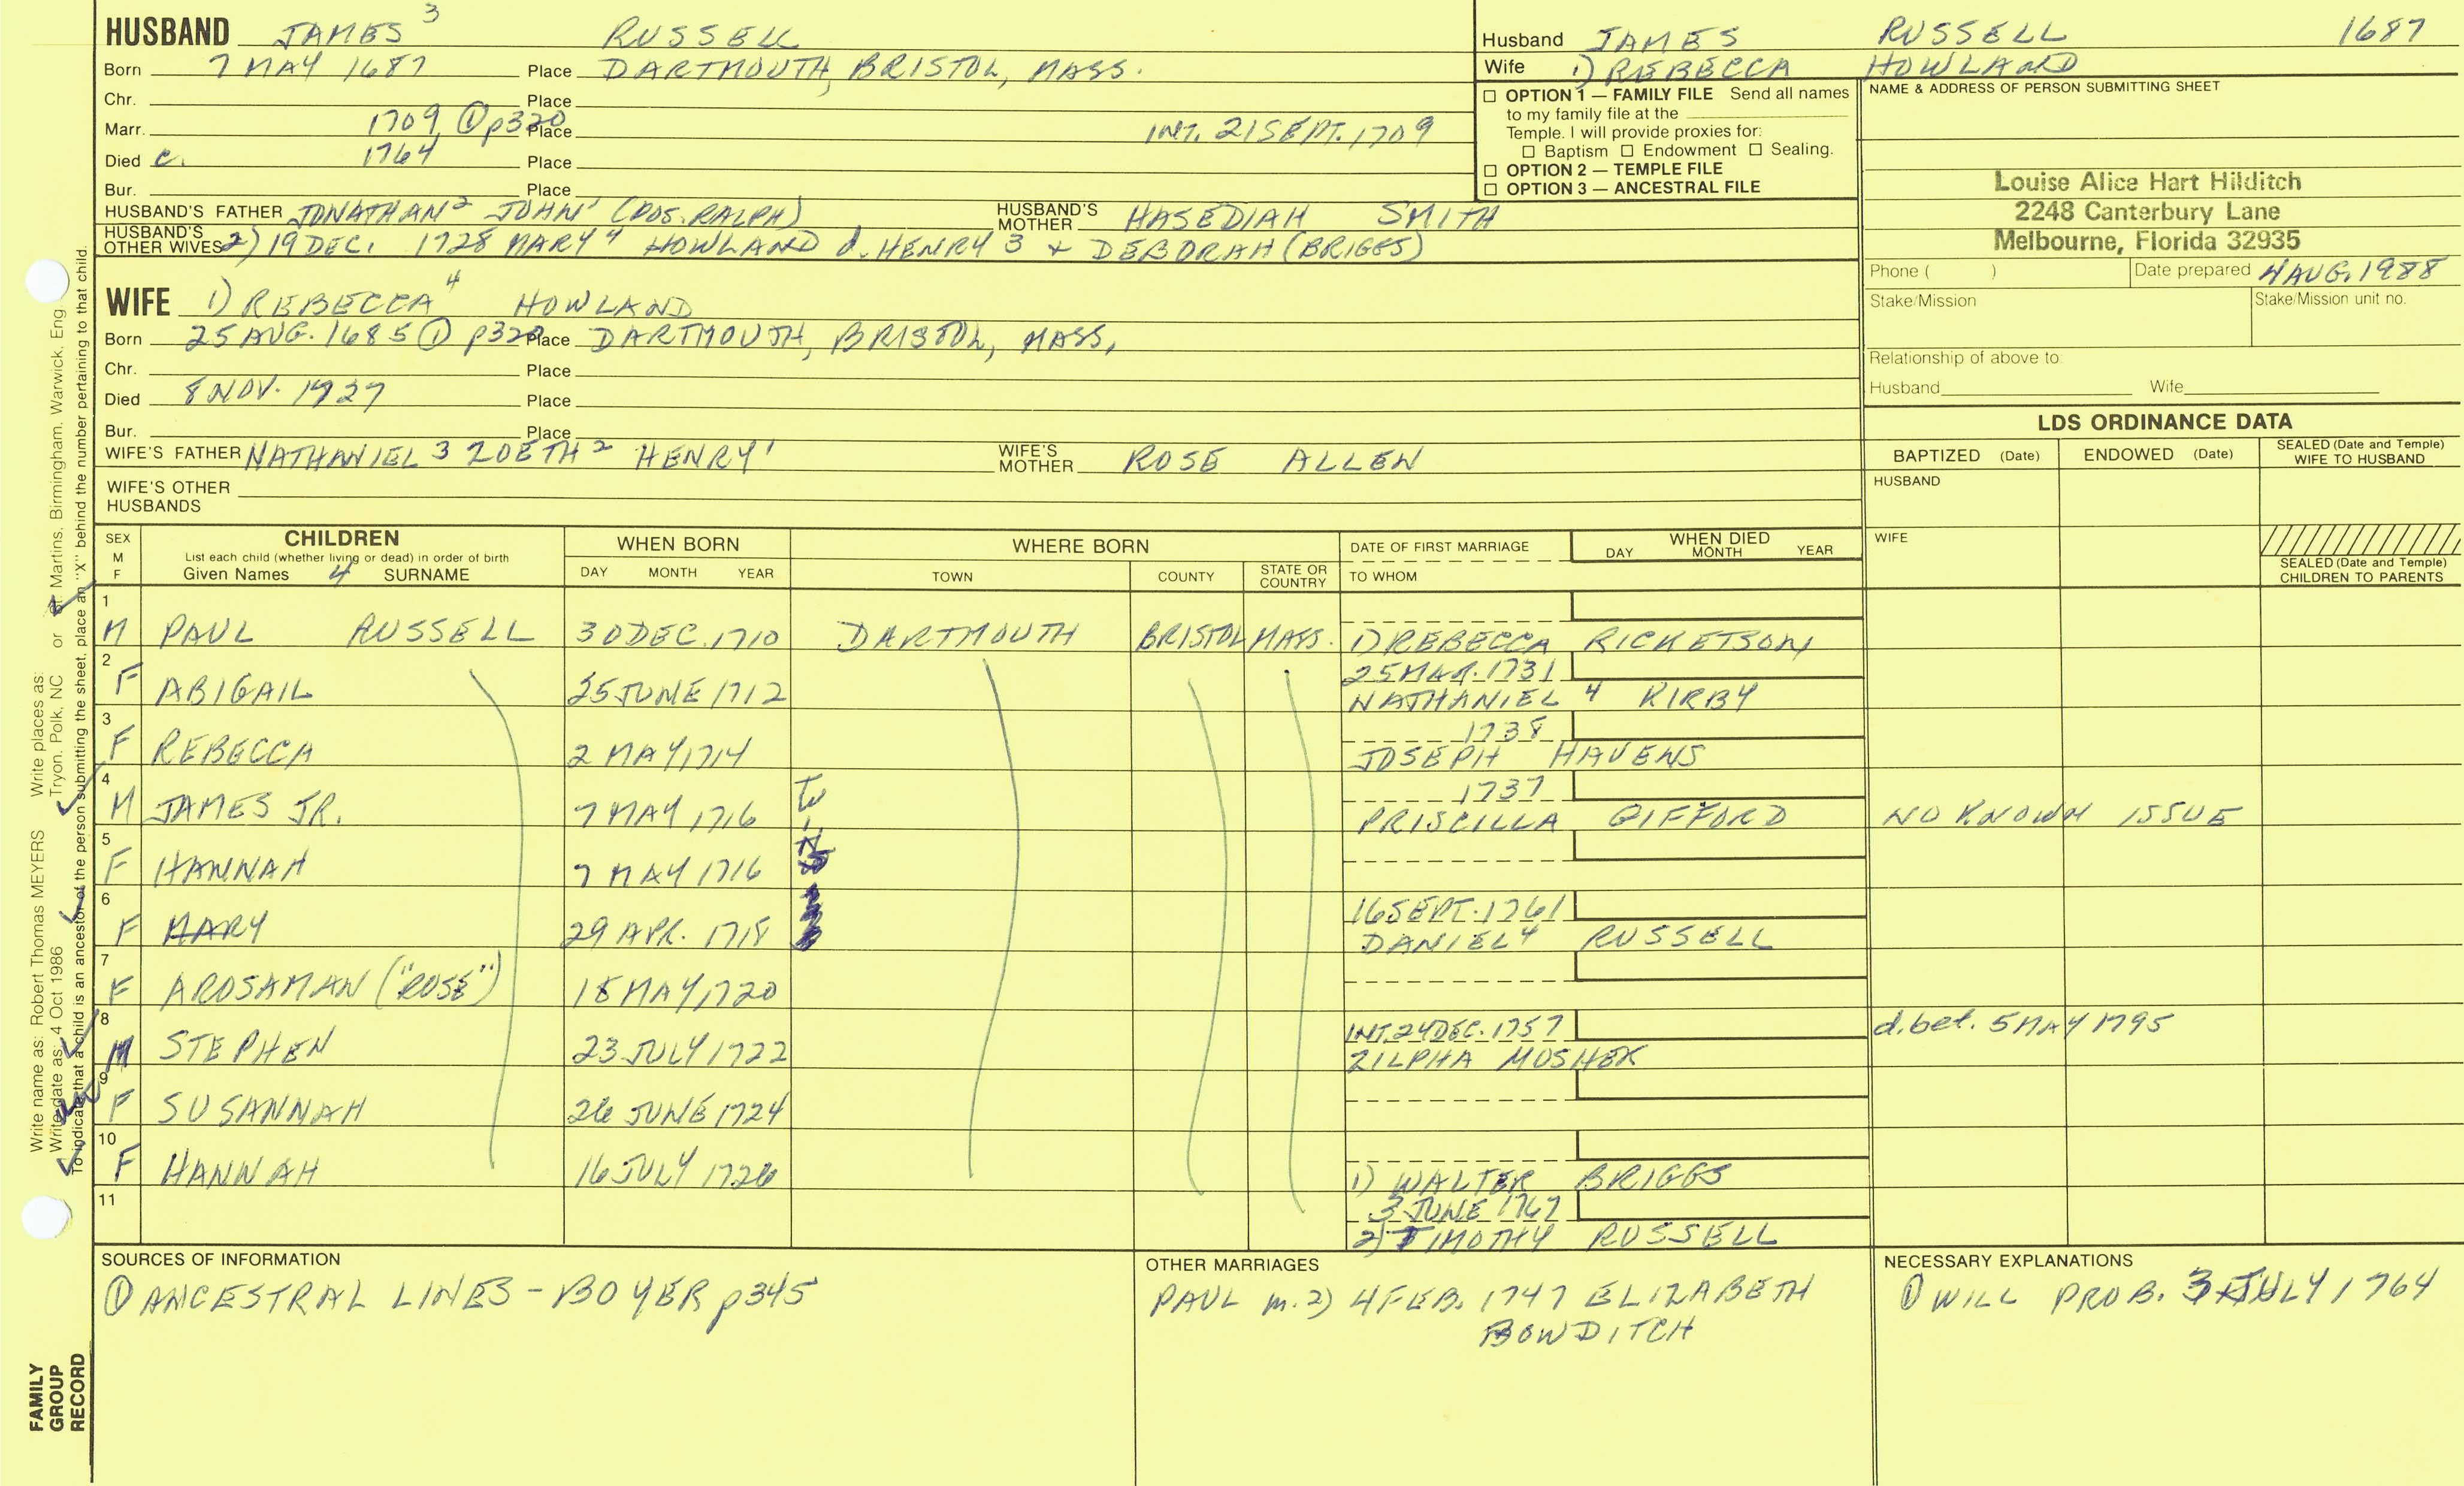 HUSBAND JAMES 3 RUSSELL
Born 7 MAY 1687 Place DARTMOUTH, BRISTOL, MASS.
Chr. Place
Marr. 1709, ① p320 Place INT. 21 SEPT. 1709
Died c. 1764 Place
Bur. Place
HUSBAND'S FATHER JONATHAN 2 JOHN 1 (POS. RALPH) HUSBAND'S MOTHER HASEDIAH SMITH
HUSBAND'S OTHER WIVES 2) 19 DEC. 1728 MARY 4 HOWLAND d. HENRY 3 + DEBORAH (BRIGGS)
WIFE 1) REBECCA 4 HOWLAND
Born 25 AUG. 1685 ① p320 Place DARTMOUTH, BRISTOL, MASS,
Chr. Place
Died 8 NOV. 1727 Place
Bur. Place
WIFE'S FATHER NATHANIEL 3 ZOETH 2 HENRY 1 WIFE'S MOTHER ROSE ALLEN
WIFE'S OTHER HUSBANDS
Husband JAMES RUSSELL 1687
Wife 1) REBECCA HOWLAND
□ OPTION 1 — FAMILY FILE Send all names
to my family file at the
Temple. I will provide proxies for:
□ Baptism □ Endowment □ Sealing.
□ OPTION 2 — TEMPLE FILE
□ OPTION 3 — ANCESTRAL FILE
NAME & ADDRESS OF PERSON SUBMITTING SHEET
Louise Alice Hart Hilditch
2248 Canterbury Lane
Melbourne, Florida 32935
Phone ( ) Date prepared 4 AUG. 1988
Stake/Mission Stake/Mission unit no.
Relationship of above to:
Husband Wife
LDS ORDINANCE DATA
BAPTIZED (Date) ENDOWED (Date) SEALED (Date and Temple) WIFE TO HUSBAND
HUSBAND
WIFE
SEALED (Date and Temple) CHILDREN TO PARENTS
SEX M F
CHILDREN
List each child (whether living or dead) in order of birth
Given Names 4 SURNAME
WHEN BORN
DAY MONTH YEAR
WHERE BORN
TOWN COUNTY STATE OR COUNTRY
DATE OF FIRST MARRIAGE
TO WHOM
WHEN DIED
DAY MONTH YEAR
1
M PAUL RUSSELL 30 DEC. 1710 DARTMOUTH BRISTOL MASS. 1) REBECCA RICKETSON
2 25 MAR. 1731
F ABIGAIL 25 JUNE 1712 NATHANIEL 4 KIRBY
3 1738
F REBECCA 2 MAY 1714 JOSEPH HAVENS
4 1737
M JAMES JR. 7 MAY 1716 PRISCILLA GIFFORD NO KNOWN ISSUE
5
F HANNAH 7 MAY 1716
6 16 SEPT. 1761
F MARY 29 APR. 1718 DANIEL 4 RUSSELL
7
F AROSAMAN ("ROSE") 18 MAY 1720
8 INT. 24 DEC. 1757 d. bet. 5 MAY 1795
M STEPHEN 23 JULY 1722 ZILPHA MOSHER
9
F SUSANNAH 26 JUNE 1724
10
F HANNAH 16 JULY 1726 1) WALTER BRIGGS
11 3 JUNE 1767
2) TIMOTHY RUSSELL
SOURCES OF INFORMATION
① ANCESTRAL LINES - BOYER p345
OTHER MARRIAGES
PAUL m. 2) 4 FEB. 1747 ELIZABETH
BOWDITCH
NECESSARY EXPLANATIONS
① WILL PROB. 3 JULY 1764
Write name as: Robert Thomas MEYERS Write places as: Tryon, Polk, NC or St. Martins, Birmingham, Warwick, Eng.
Write date as: 4 Oct 1986
To indicate that a child is an ancestor of the person submitting the sheet, place an "X" behind the number pertaining to that child.
FAMILY
GROUP
RECORD